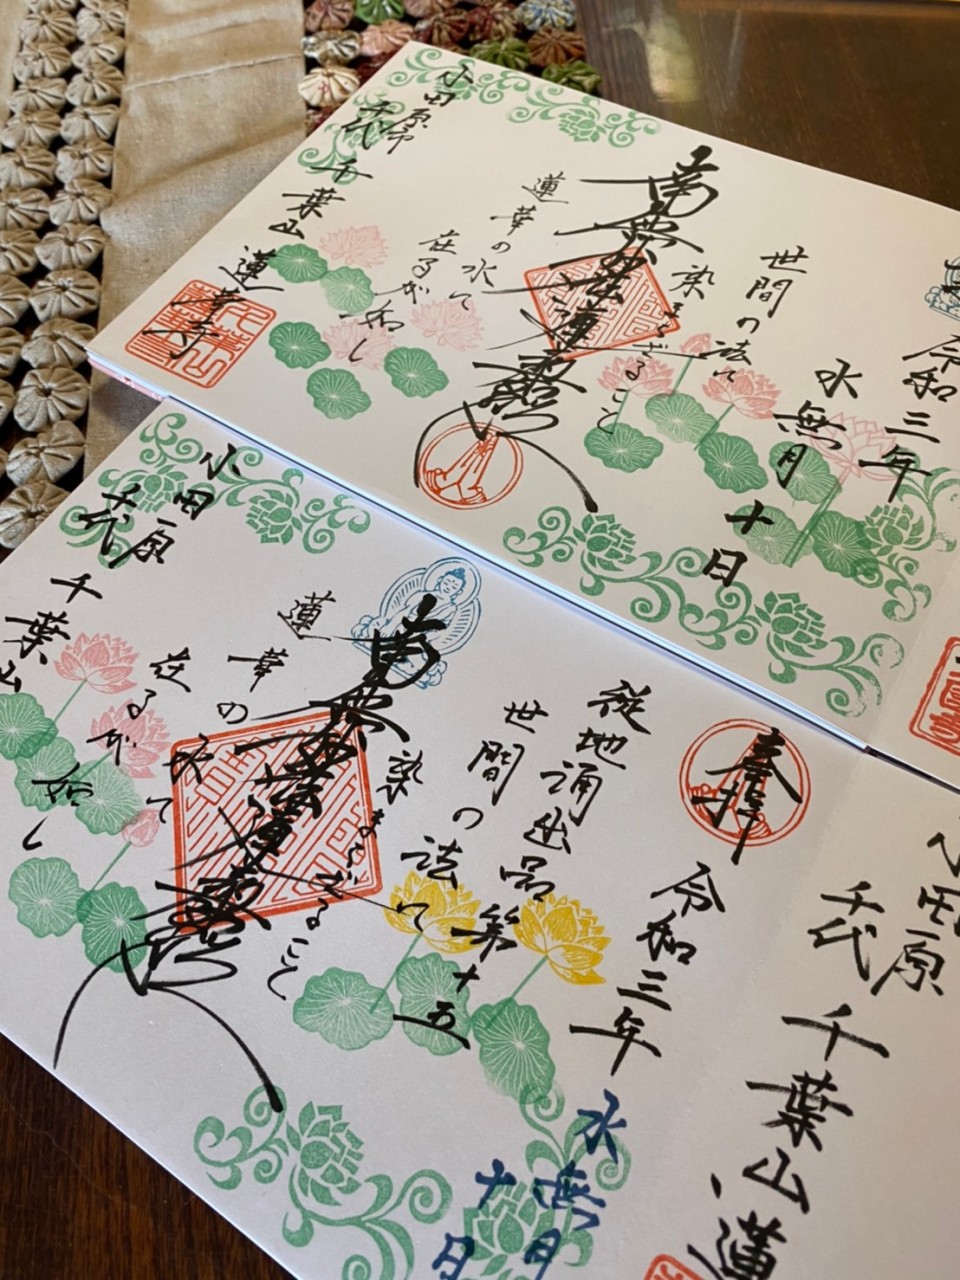 令和三年
水無月
十日
世間の法に
染まらざること
南無妙法蓮華経
蓮華の水に
在るが如し
小田原市
千代 千葉山
蓮華寺
奉拝
令和三年
水無月
十日
従地涌出品第十五
世間の法に
染まらざること
南無妙法蓮華経
蓮華の水に
在るが如し
小田原
千代
千葉山
小田原
千代
千葉山
蓮